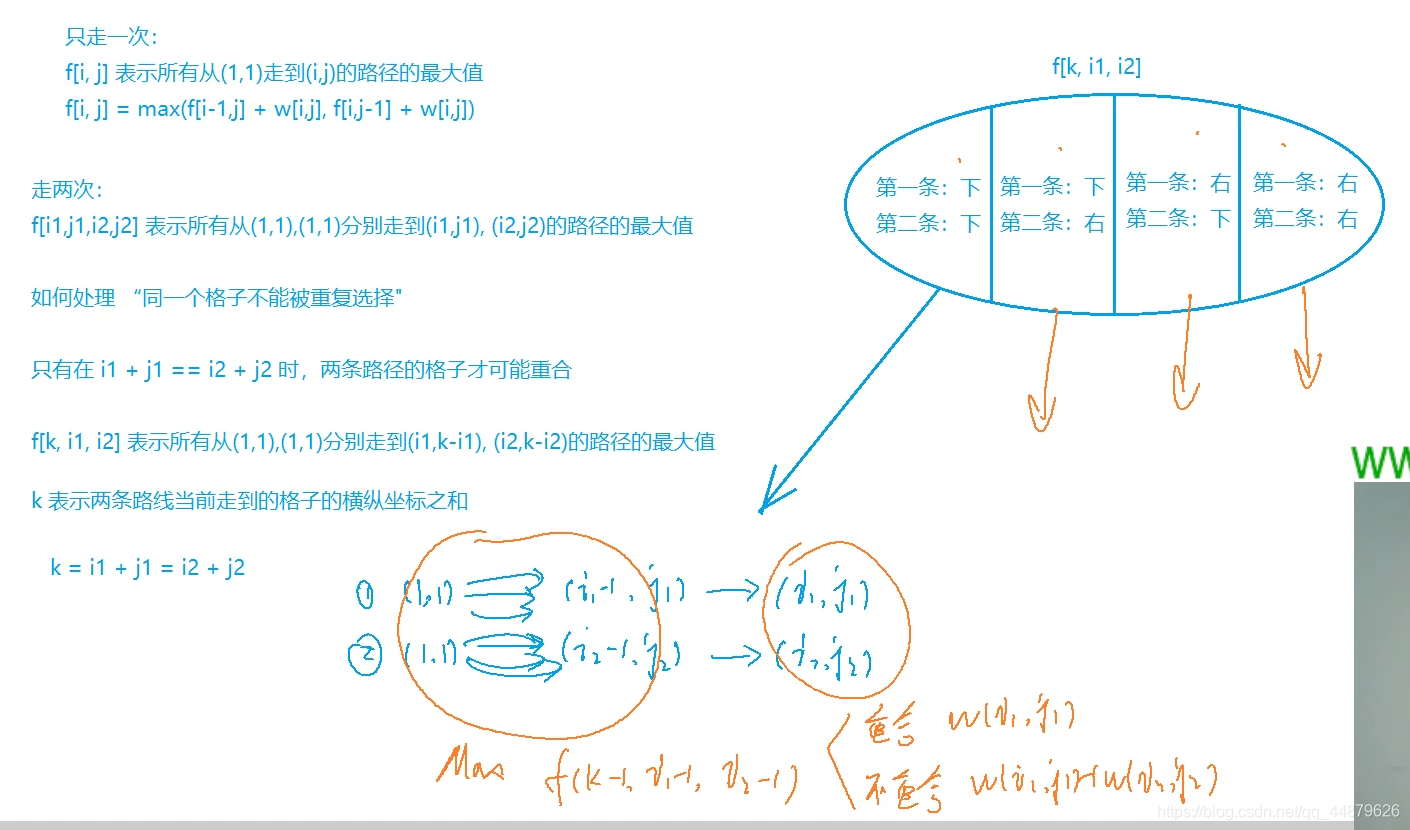 只走一次：
f[i, j] 表示所有从(1,1)走到(i,j)的路径的最大值
f[i, j] = max(f[i-1,j] + w[i,j], f[i,j-1] + w[i,j])
走两次：
f[i1,j1,i2,j2] 表示所有从(1,1),(1,1)分别走到(i1,j1), (i2,j2)的路径的最大值
如何处理 “同一个格子不能被重复选择"
只有在 i1 + j1 == i2 + j2 时，两条路径的格子才可能重合
f[k, i1, i2] 表示所有从(1,1),(1,1)分别走到(i1,k-i1), (i2,k-i2)的路径的最大值
k 表示两条路线当前走到的格子的横纵坐标之和
k = i1 + j1 = i2 + j2
f[k, i1, i2]
第一条：下 第一条：下 第一条：右 第一条：右
第二条：下 第二条：右 第二条：下 第二条：右
① (1,1) (i1-1, j1) (i1, j1)
② (1,1) (i2-1, j2) (i2, j2)
Max f(k-1, i1-1, i2-1)
重合 w(i1, j1)
不重合 w(i1,j1)+w(i2,j2)
WW
https://blog.csdn.net/qq_44879626